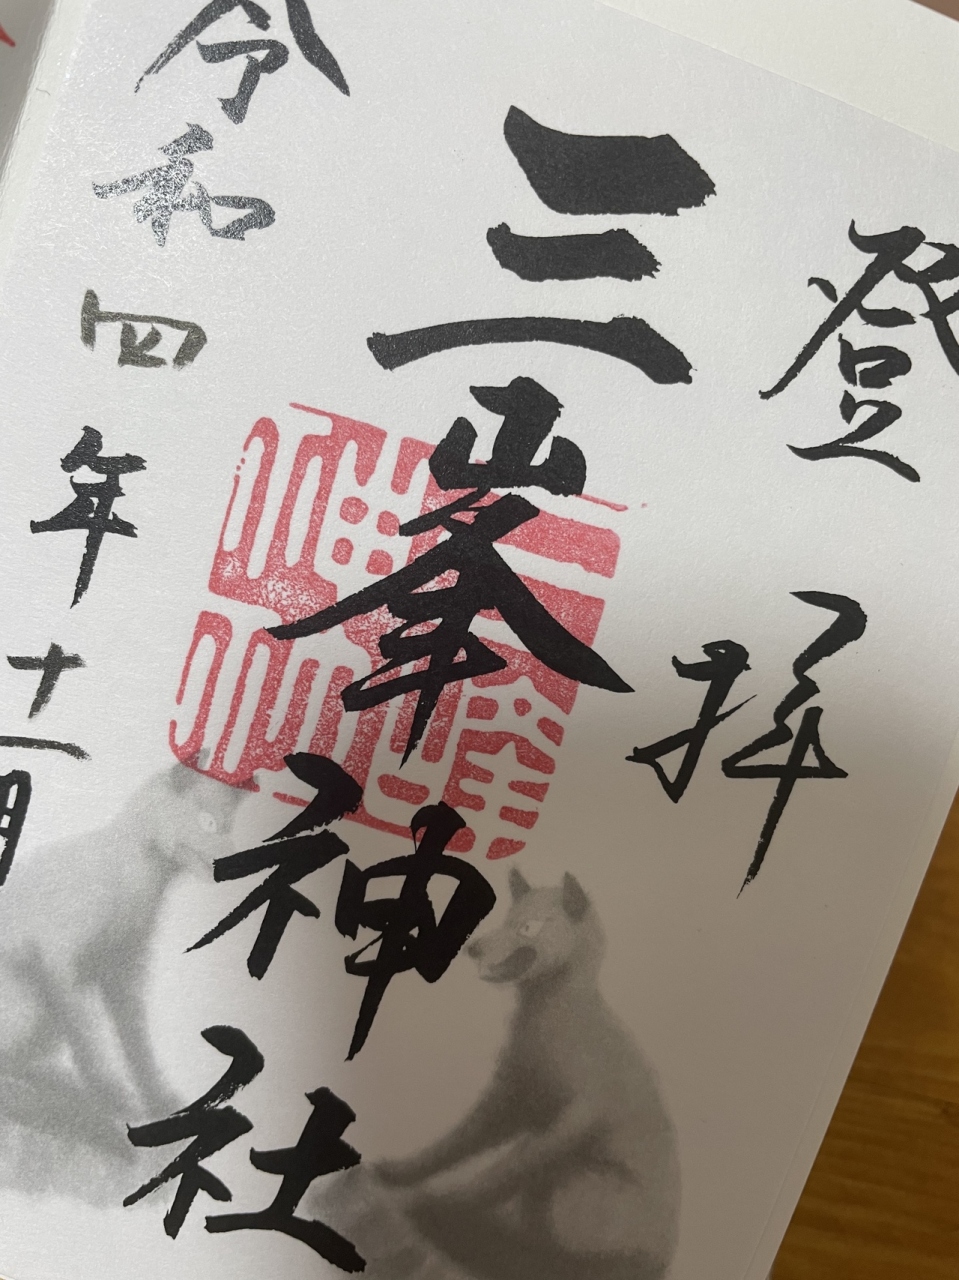 登拝
三峯神社
令和四年十一月
三峯神社